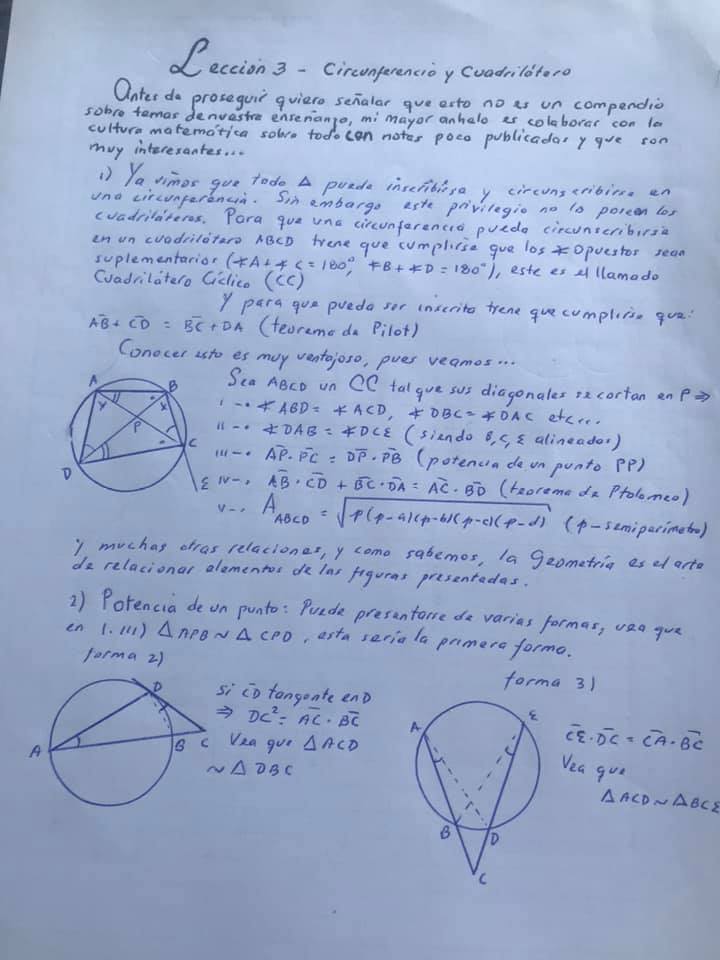 Lección 3 - Circunferencia y Cuadrilátero
Antes de proseguir quiero señalar que esto no es un compendio
sobre temas de nuestra enseñanza, mi mayor anhelo es colaborar con la
cultura matemática sobre todo con notas poco publicadas y que son
muy interesantes...
1) Ya vimos que todo △ puede inscribirse y circunscribirse en
una circunferencia. Sin embargo este privilegio no lo poseen los
cuadriláteros. Para que una circunferencia pueda circunscribirse
en un cuadrilátero ABCD tiene que cumplirse que los ∢ Opuestos sean
suplementarios (∢A+∢C=180°, ∢B+∢D=180°), este es el llamado
Cuadrilátero Cíclico (CC)
Y para que pueda ser inscrita tiene que cumplirse que:
A̅B̅ + C̅D̅ = B̅C̅ + DA (teorema de Pilot)
Conocer esto es muy ventajoso, pues veamos...
Sea ABCD un CC tal que sus diagonales se cortan en P ⇒
I-. ∢ABD = ∢ACD, ∢DBC = ∢DAC etc...
II-. ∢DAB = ∢DCE (siendo B,C,E alineados)
III-. A̅P̅·P̅C̅ = D̅P̅·P̅B̅ (potencia de un punto PP)
IV-. A̅B̅·C̅D̅ + B̅C̅·D̅A̅ = A̅C̅·B̅D̅ (teorema de Ptolomeo)
V-. A_ABCD = √(p(p-a)(p-b)(p-c)(p-d) (p-semiperímetro)
A
B
x
x
P
D
C
E
Y muchas otras relaciones, y como sabemos, la Geometría es el arte
de relacionar elementos de las figuras presentadas.
2) Potencia de un punto: Puede presentarse de varias formas, vea que
en 1.III) △APB ~ △CPD, esta sería la primera forma.
forma 2)
A
D
B
C
Si C̅D̅ tangente en D
⇒ DC² = A̅C̅·B̅C̅
Vea que △ACD
~ △DBC
forma 3)
A
E
B
D
C
C̅E̅·D̅C̅ = C̅A̅·B̅C̅
Vea que
△ACD ~ △BCE